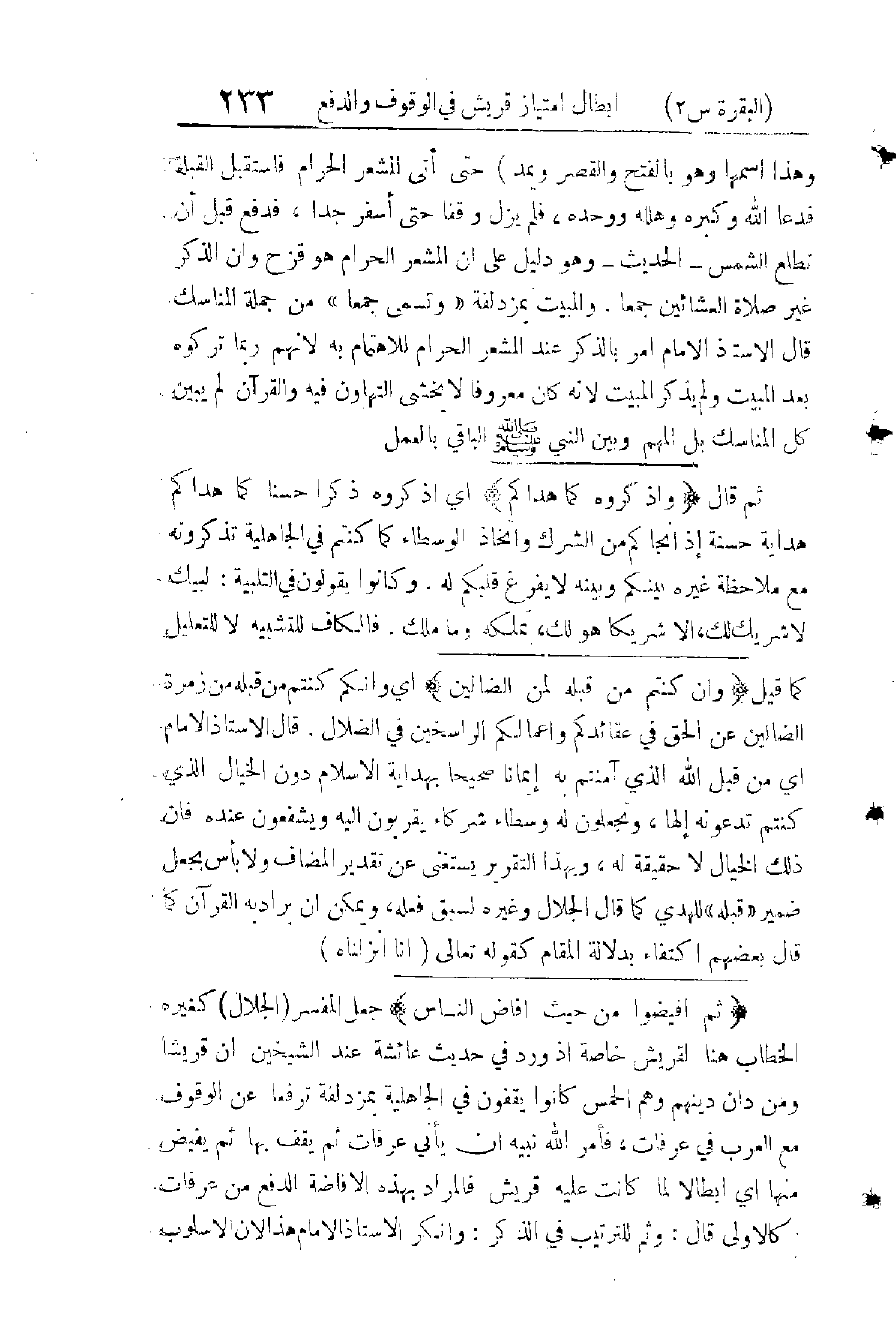 (البقرة س ٢) ابطال امتياز قريش في الوقوف والدفع ٢٣٣
وهذا اسمها وهو بالفتح والقصر ويمد ) حتى أتى المشعر الحرام فاستقبل القبلة
فدعا الله وكبره وهلله ووحده ، فلم يزل وقفا حتى أسفر جدا ، فدفع قبل أن
تطلع الشمس ـ الحديث ـ وهو دليل على ان المشعر الحرام هو قزح وان الذكر
غير صلاة العشائين جمعا . والمبيت بمزدلفة « وتسمى جمعا » من جملة المناسك
قال الاستاذ الامام امر بالذكر عند المشعر الحرام للاهتمام به لانهم ربما تركوه
بعد المبيت ولم يذكر المبيت لانه كان معروفا لا يخشى التهاون فيه والقرآن لم يبين
كل المناسك بل المهم وبين النبي ﷺ الباقي بالعمل
ثم قال ﴿ واذكروه كما هداكم ﴾ اي اذكروه ذكرا حسنا كما هداكم
هداية حسنة إذ انجاكم من الشرك واتخاذ الوسطاء كما كنتم في الجاهلية تذكرونه
مع ملاحظة غيره بينكم وبينه لا يفرغ قلبكم له . وكانوا يقولون في التلبية : لبيك
لا شريك لك، الا شريكا هو لك، تملكه وما ملك . فالكاف للتشبيه لا للتعليل
كما قيل ﴿ وان كنتم من قبله لمن الضالين ﴾ اي وانكم كنتم من قبله من زمرة
الضالين عن الحق في عقائدكم واعمالكم الراسخين في الضلال . قال الاستاذ الامام
اي من قبل الله الذي آمنتم به إيمانا صحيحا بهداية الاسلام دون الخيال الذي
كنتم تدعونه إلها ، وتجعلون له وسطاء شركاء يقربون اليه ويشفعون عنده فان
ذلك الخيال لا حقيقة له ، وبهذا التقرير يستغنى عن تقدير المضاف ولا بأس بجعل
ضمير «قبله» للهدي كما قال الجلال وغيره لسبق فعله، ويمكن ان يراد به القرآن كما
قال بعضهم اكتفاء بدلالة المقام كقوله تعالى ( انا انزلناه )
﴿ ثم افيضوا من حيث افاض النـاس ﴾ جعل المفسر (الجلال) كغيره
الخطاب هنا لقريش خاصة اذ ورد في حديث عائشة عند الشيخين ان قريشا
ومن دان دينهم وهم الحمس كانوا يقفون في الجاهلية بمزدلفة ترفعا عن الوقوف
مع العرب في عرفات ، فأمر الله نبيه ان يأتي عرفات ثم يقف بها ثم يفيض
منها اي ابطالا لما كانت عليه قريش فالمراد بهذه الافاضة الدفع من عرفات
كالاولى قال : وثم للترتيب في الذكر : وانكر الاستاذ الامام هذا لان الاسلوب